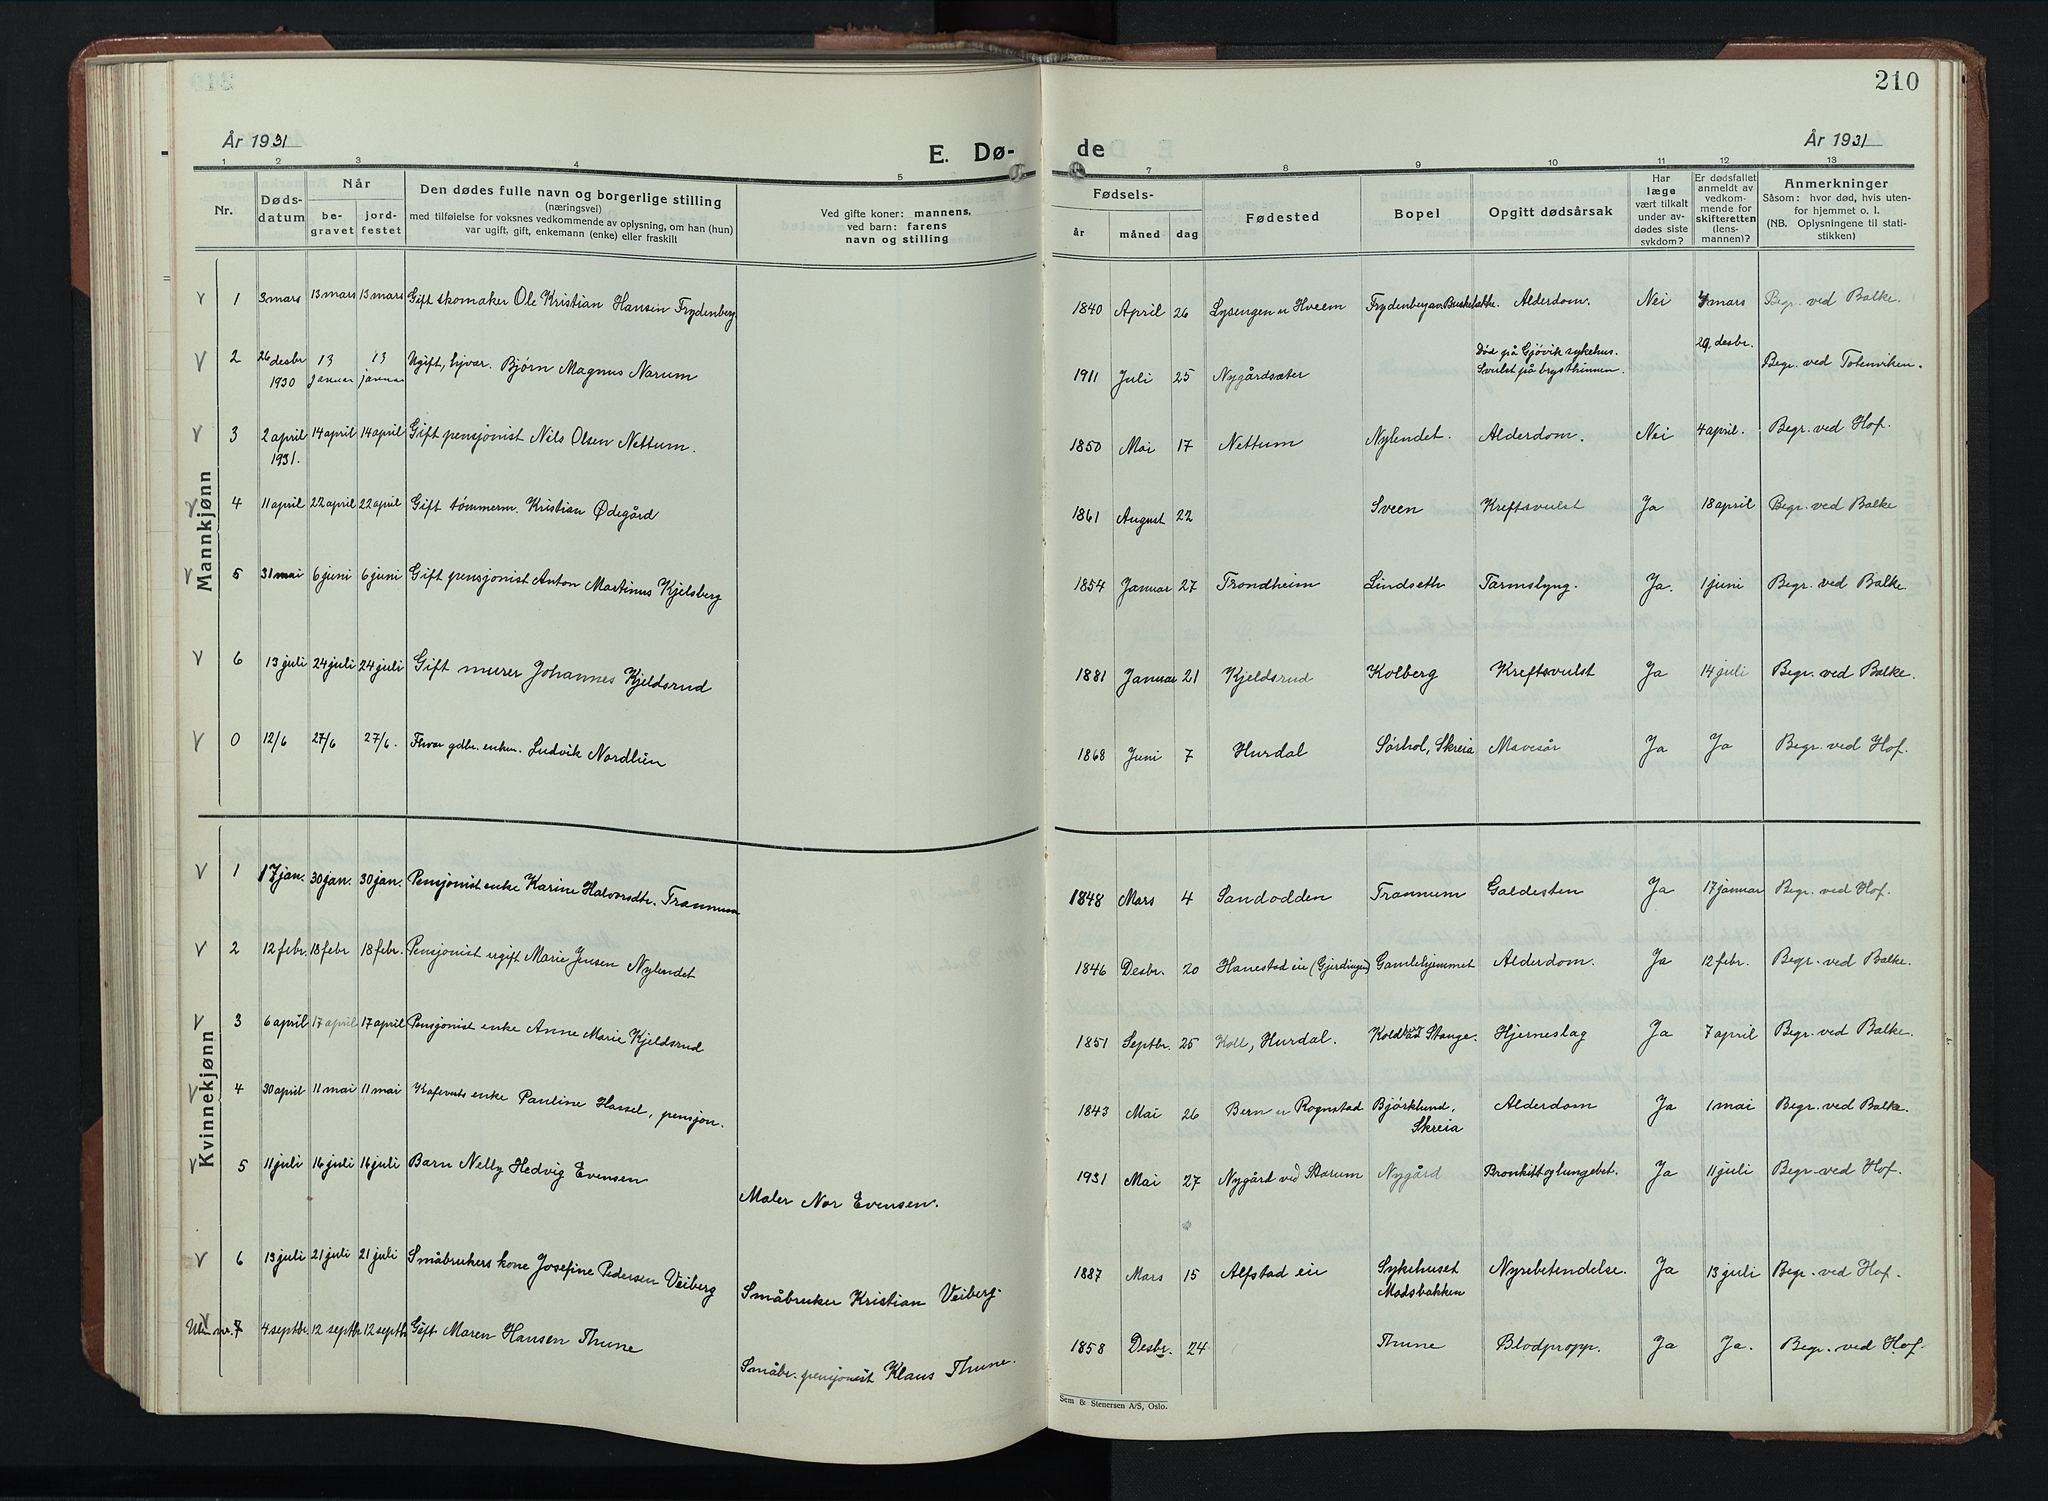 210
År 1931
E. Dø-
de
År 1931
1 2 3 4 5 7 8 9 10 11 12 13
Nr.
Døds-
datum
Når
be-
gravet
jord-
festet
Den dødes fulle navn og borgerlige stilling
(næringsvei)
med tilføielse for voksnes vedkommende av oplysning, om han (hun)
var ugift, gift, enkemann (enke) eller fraskilt
Ved gifte koner: mannens,
ved barn: farens
navn og stilling
Fødsels-
år måned dag
Fødested
Bopel
Opgitt dødsårsak
Har
læge
vært tilkalt
under av-
dødes siste
sykdom?
Er dødsfallet
anmeldt av
vedkom-
mende for
skifteretten
(lens-
mannen)?
Anmerkninger
Såsom: hvor død, hvis uten-
for hjemmet o. l.
(NB. Oplysningene til stati-
stikken)
Mannkjønn
1 3 mars 13 mars 13 mars Gift skomaker Ole Kristian Hansen Frydenberg 1840 April 26 Lysengen u Hveem Alderdom. Nei 4 mars Begr. ved Balke.
2 26 desbr 1930 13 januar 13 januar Ugift, Bjørn Magnus Narum 1911 Juli 25 Nygårdsæter Død på Gjøvik sykehus. Svulst på brysthinnen. 29 desbr. Begr. ved Totenviken.
3 2 april 1931. 14 april 14 april Gift pensjonist Nils Olsen Nettum. 1850 Mai 17 Nettum Nylendet. Alderdom. Nei 4 april. Begr. ved Hof.
4 11 april 22 april 22 april Gift tømmerm. Kristian Ødegård 1861 August 22 Sveen Kreftsvulst Ja 18 april Begr. ved Balke
5 31 mai 6 juni 6 juni Gift pensjonist Anton Martinus Kjelsberg 1854 Januar 27 Trondheim Lindseth Tarmslyng. Ja. 1 juni Begr. ved Balke.
6 13 juli 24 juli 24 juli Gift murer Johannes Kjeldsrud 1881 Januar 21 Kjeldsrud Kolberg Kreftsvulst Ja 14 juli Begr. ved Balke.
0 12/6 27/6 27/6. Fhvar gdbr. enkem. Ludvik Nordlien 1868 Juni 7 Hurdal Sørhol, Skreia Mavesår Ja Ja Begr. ved Hof.
Kvinnekjønn
1 17 jan. 30 jan. 30 jan. Pensjonist enke Karine Halvorsdtr. Trannum 1848 Mars 4 Sandodden Trannum Galdesten Ja 17 januar Begr. ved Hof.
2 12 febr. 18 febr 18 febr. Pensjonist ugift Marie Jensen Nylendet 1846 Desbr. 20 Hanestad eie (Gjerdingen) Gamlehjemmet Alderdom. Ja 12 febr. Begr. ved Balke.
3 6 april 17 april 17 april Pensjonist enke Anne Marie Kjeldsrud 1851 Septbr. 25 Koll, Hurdal. Stange. Hjerneslag Ja 7 april Begr. ved Balke.
4 30 april 11 mai 11 mai enke Pauline Hassel, pensjon. 1843 Mai 26 Bern u Rognstad Bjørklund, Skreia Alderdom Ja 1 mai Begr. ved Balke.
5 11 juli 16 juli 16 juli Barn Nelly Hedvig Evensen Maler Nor Evensen. 1931 Mai 27 Nygård ved Starum Nygård Bronkitt og lungebet. Ja 11 juli Begr. ved Hof.
6 13 juli 21 juli 21 juli Småbrukers kone Josefine Pedersen Veiberg Småbruker Kristian Veiberg. 1887 Mars 15 Alfstad eie Sykehuset Madsbakken Nyrebetendelse. Ja 13 juli Begr. ved Hof.
7 4 septbr. 12 septbr 12 septb Gift Maren Hansen Thune Småbr. pensjonist Klaus Thune. 1858 Desbr. 24 Thune Blodpropp. Ja Ja. Begr. ved Hof.
Sem & Stenersen A/S, Oslo.